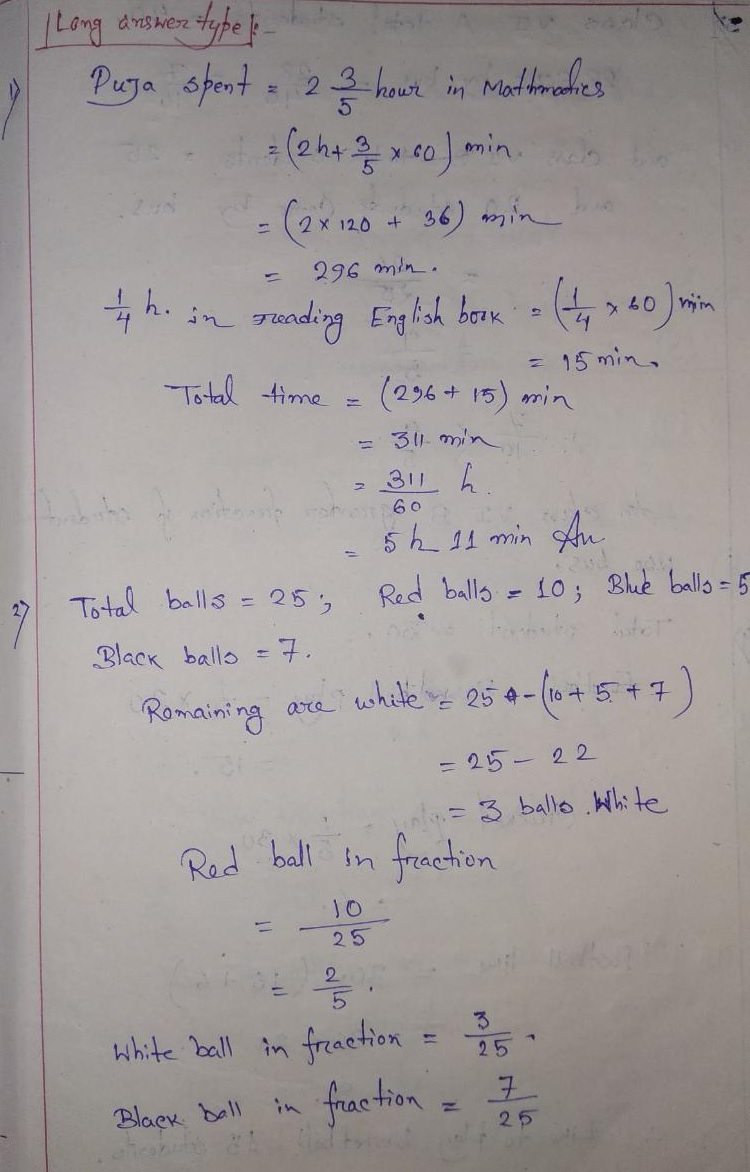 Long answer type :-
1) Puja spent = 2 3/5 hour in Mathmatics
= (2h + 3/5 × 60) min.
= (2 × 120 + 36) min
= 296 min.
1/4 h. in reading English book = (1/4 × 60) min
= 15 min.
Total time = (296 + 15) min
= 311 min
= 311/60 h.
= 5 h 11 min An
2) Total balls = 25; Red balls = 10; Blue balls = 5
Black balls = 7.
Romaining are white = 25 - (10 + 5 + 7)
= 25 - 22
= 3 balls. White
Red ball in fraction
= 10/25
= 2/5.
White ball in fraction = 3/25.
Black ball in fraction = 7/25